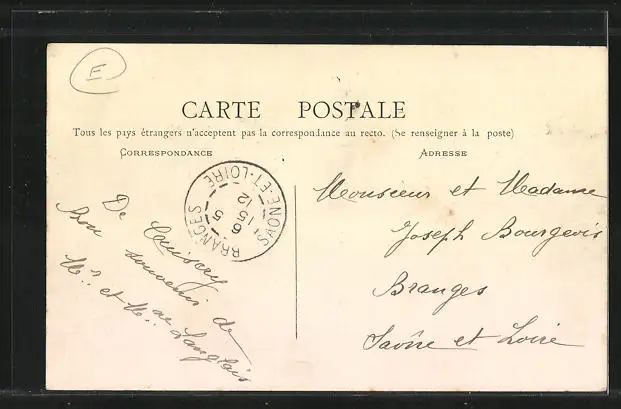 E
CARTE POSTALE
Tous les pays étrangers n'acceptent pas la correspondance au recto. (Se renseigner à la poste)
CORRESPONDANCE
ADRESSE
BRANGES
6 - 5
15
12
SAONE-ET-LOIRE
De Cuisery
Bon souvenir de
Mr. et Mme Langlais
Monsieur et Madame
Joseph Bourgeois
Branges
Saône et Loire